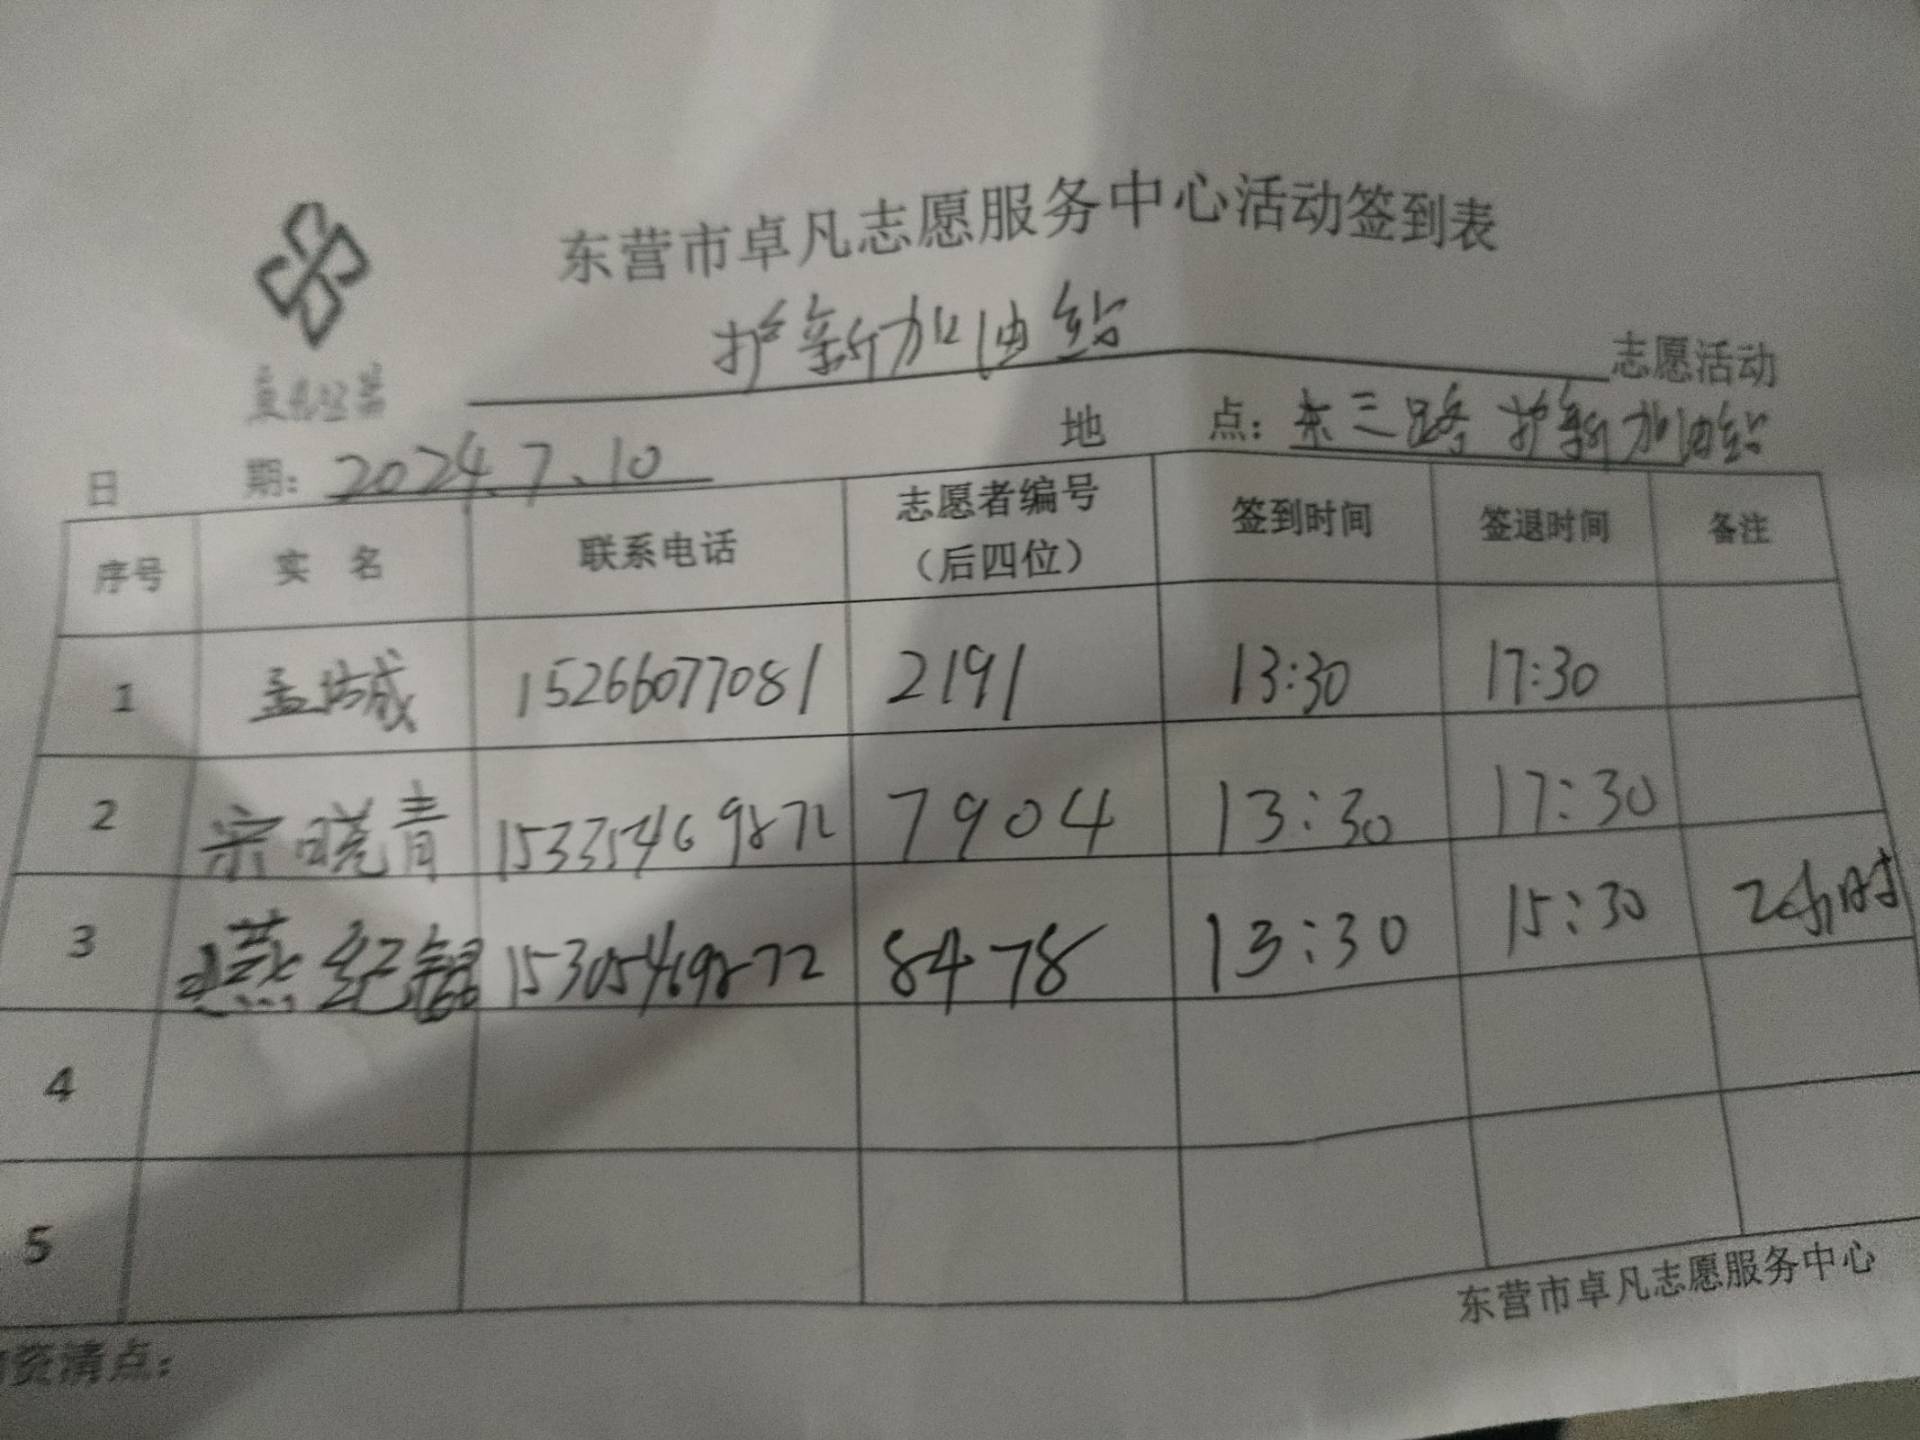 东营市卓凡志愿服务中心活动签到表
护新加油站 志愿活动
日 期: 2024.7.10 地 点: 东三路 护新加油站
序号 实 名 联系电话 志愿者编号（后四位） 签到时间 签退时间 备注
1 孟城 15266077081 2191 13:30 17:30
2 宋晓青 15335469872 7904 13:30 17:30
3 燕纪铭 15305469872 8478 13:30 15:30 2小时
4
5
东营市卓凡志愿服务中心
资清点: